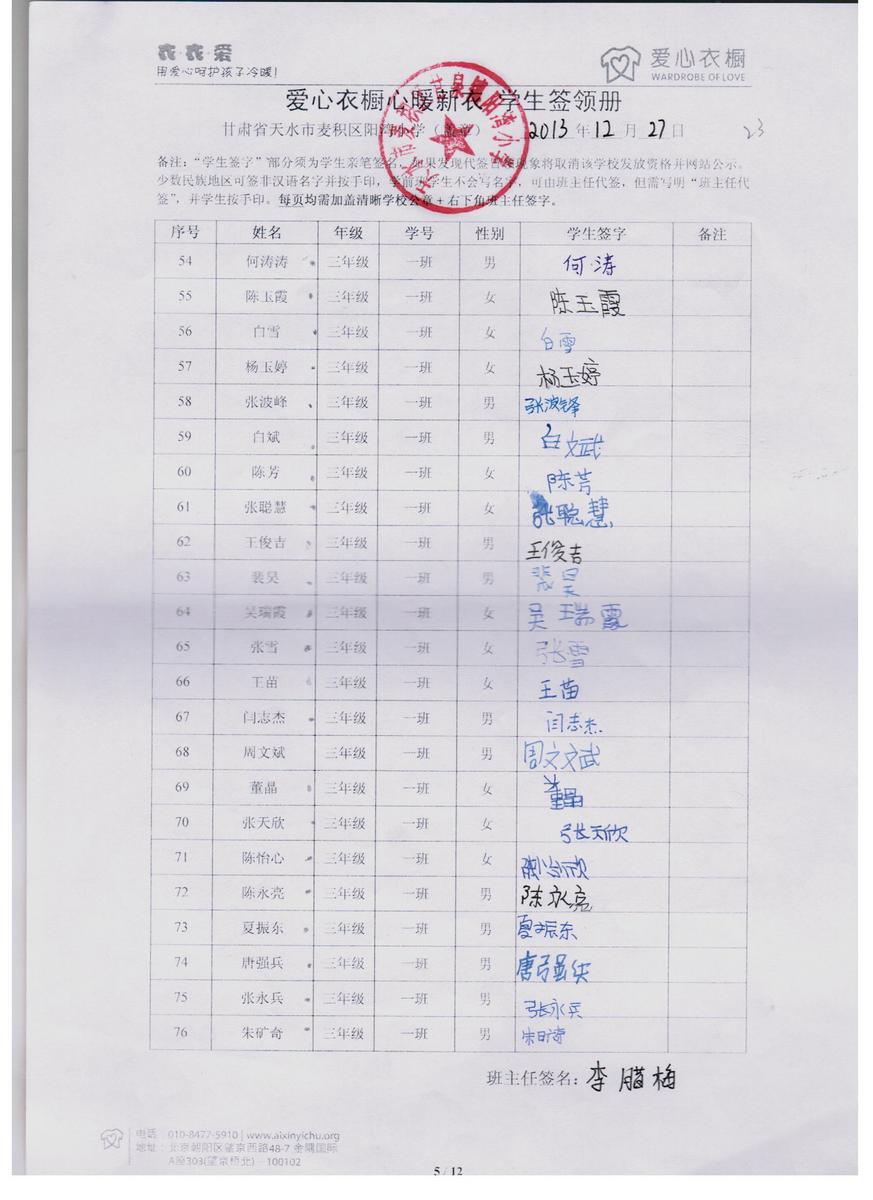 衣·衣·爱
用爱心呵护孩子冷暖!
爱心衣橱
WARDROBE OF LOVE
爱心衣橱心暖新衣 学生签领册
甘肃省天水市麦积区阳湾小学（盖章） 2013 年 12 月 27 日 23
天水市麦积区甘泉镇阳湾小学
备注：“学生签字”部分须为学生亲笔签名，如果发现代签冒领现象将取消该学校发放资格并网站公示。
少数民族地区可签非汉语名字并按手印，学前班学生不会写名字，可由班主任代签，但需写明“班主任代
签”，并学生按手印。每页均需加盖清晰学校公章+右下角班主任签字。
序号 姓名 年级 学号 性别 学生签字 备注
54 何涛涛 三年级 一班 男 何涛
55 陈玉霞 三年级 一班 女 陈玉霞
56 白雪 三年级 一班 女 白雪
57 杨玉婷 三年级 一班 女 杨玉婷
58 张波峰 三年级 一班 男 张波锋
59 白斌 三年级 一班 男 白文武
60 陈芳 三年级 一班 女 陈芳
61 张聪慧 三年级 一班 女 张聪慧
62 王俊吉 三年级 一班 男 王俊吉
63 裴昊 三年级 一班 男 裴昊
64 吴瑞霞 三年级 一班 女 吴瑞霞
65 张雪 三年级 一班 女 张雪
66 王苗 三年级 一班 女 王苗
67 闫志杰 三年级 一班 男 闫志杰
68 周文斌 三年级 一班 男 周文文武
69 董晶 三年级 一班 女 董晶
70 张天欣 三年级 一班 女 张天欣
71 陈怡心 三年级 一班 女
72 陈永亮 三年级 一班 男 陈永亮
73 夏振东 三年级 一班 男 夏振东
74 唐强兵 三年级 一班 男 唐强兵
75 张永兵 三年级 一班 男 张永兵
76 朱旷奇 三年级 一班 男 朱旷奇
班主任签名：李腊梅
电话：010-8477-5910 | www.aixinyichu.org
地址：北京朝阳区望京西路48-7 金隅国际
A座303(望京桥北)－100102
5 / 12